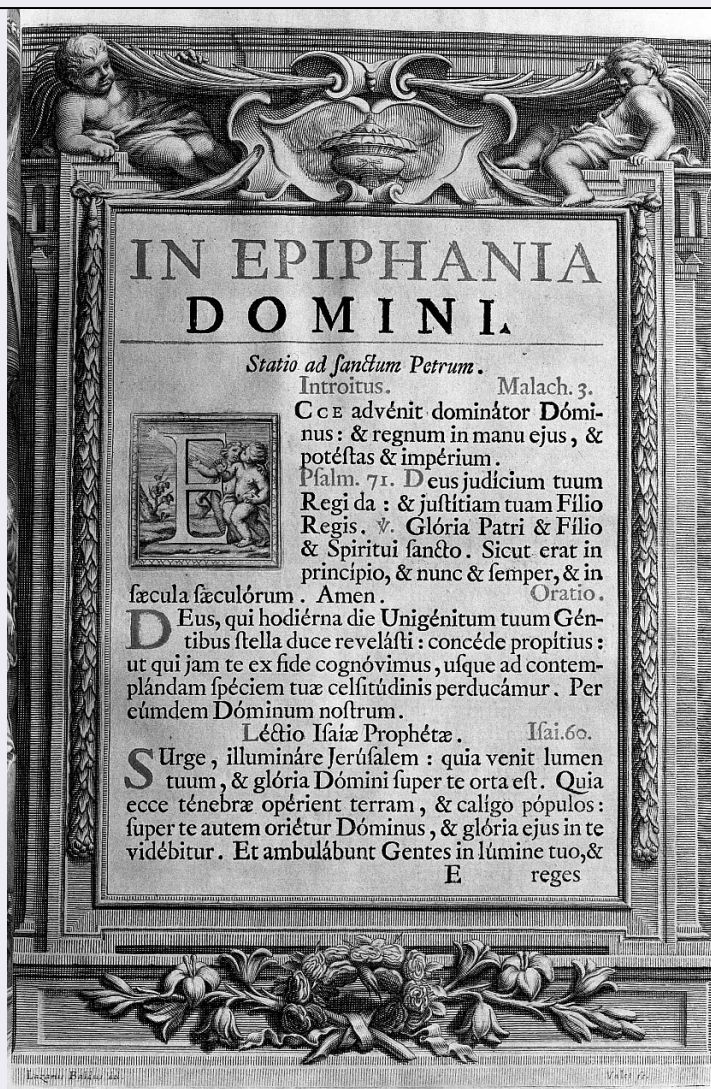 IN EPIPHANIA
DOMINI.
Statio ad ſanctum Petrum.
Introitus. Malach. 3.
ECCE advénit dominátor Dómi-
nus: & regnum in manu ejus, &
potéſtas & impérium.
Pſalm. 71. Deus judícium tuum
Regi da: & juſtítiam tuam Fílio
Regis. ℣. Glória Patri & Fílio
& Spiritui ſancto. Sicut erat in
princípio, & nunc & ſemper, & in
ſæcula ſæculórum. Amen. Oratio.
DEus, qui hodiérna die Unigénitum tuum Gén-
tibus ſtella duce reveláſti: concéde propítius:
ut qui jam te ex fide cognóvimus, uſque ad contem-
plándam ſpéciem tuæ celſitúdinis perducámur. Per
eúmdem Dóminum noſtrum.
Léctio Iſaíæ Prophétæ. Iſai. 60.
SUrge, illumináre Jerúſalem: quia venit lumen
tuum, & glória Dómini ſuper te orta eſt. Quia
ecce ténebræ opérient terram, & calígo pópulos:
ſuper te autem oriétur Dóminus, & glória ejus in te
vidébitur. Et ambulábunt Gentes in lúmine tuo, &
E reges
Lazarus Baldus